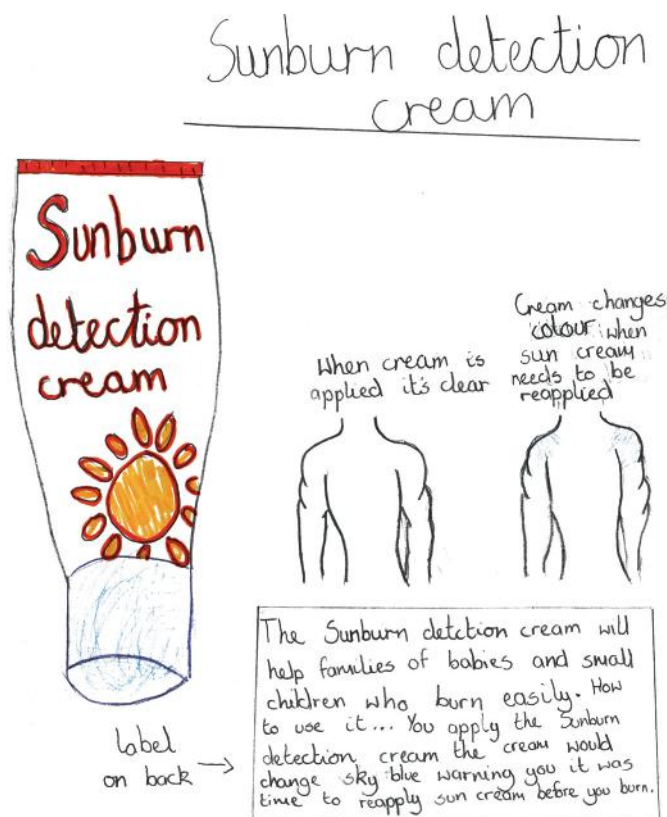 Sunburn detection
cream
Sunburn
detection
cream
When cream is
applied it's clear
Cream changes
colour when
sun cream
needs to be
reapplied
label
on back
The Sunburn detction cream will
help families of babies and small
children who burn easily. How
to use it... You apply the Sunburn
detection cream the cream would
change sky blue warning you it was
time to reapply sun cream before you burn.